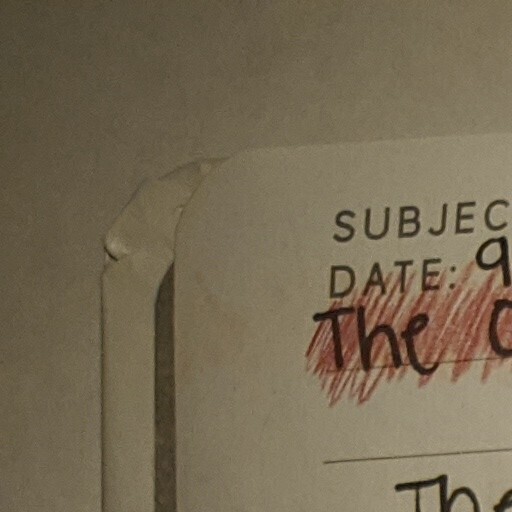 SUBJEC
DATE: 9
The
The